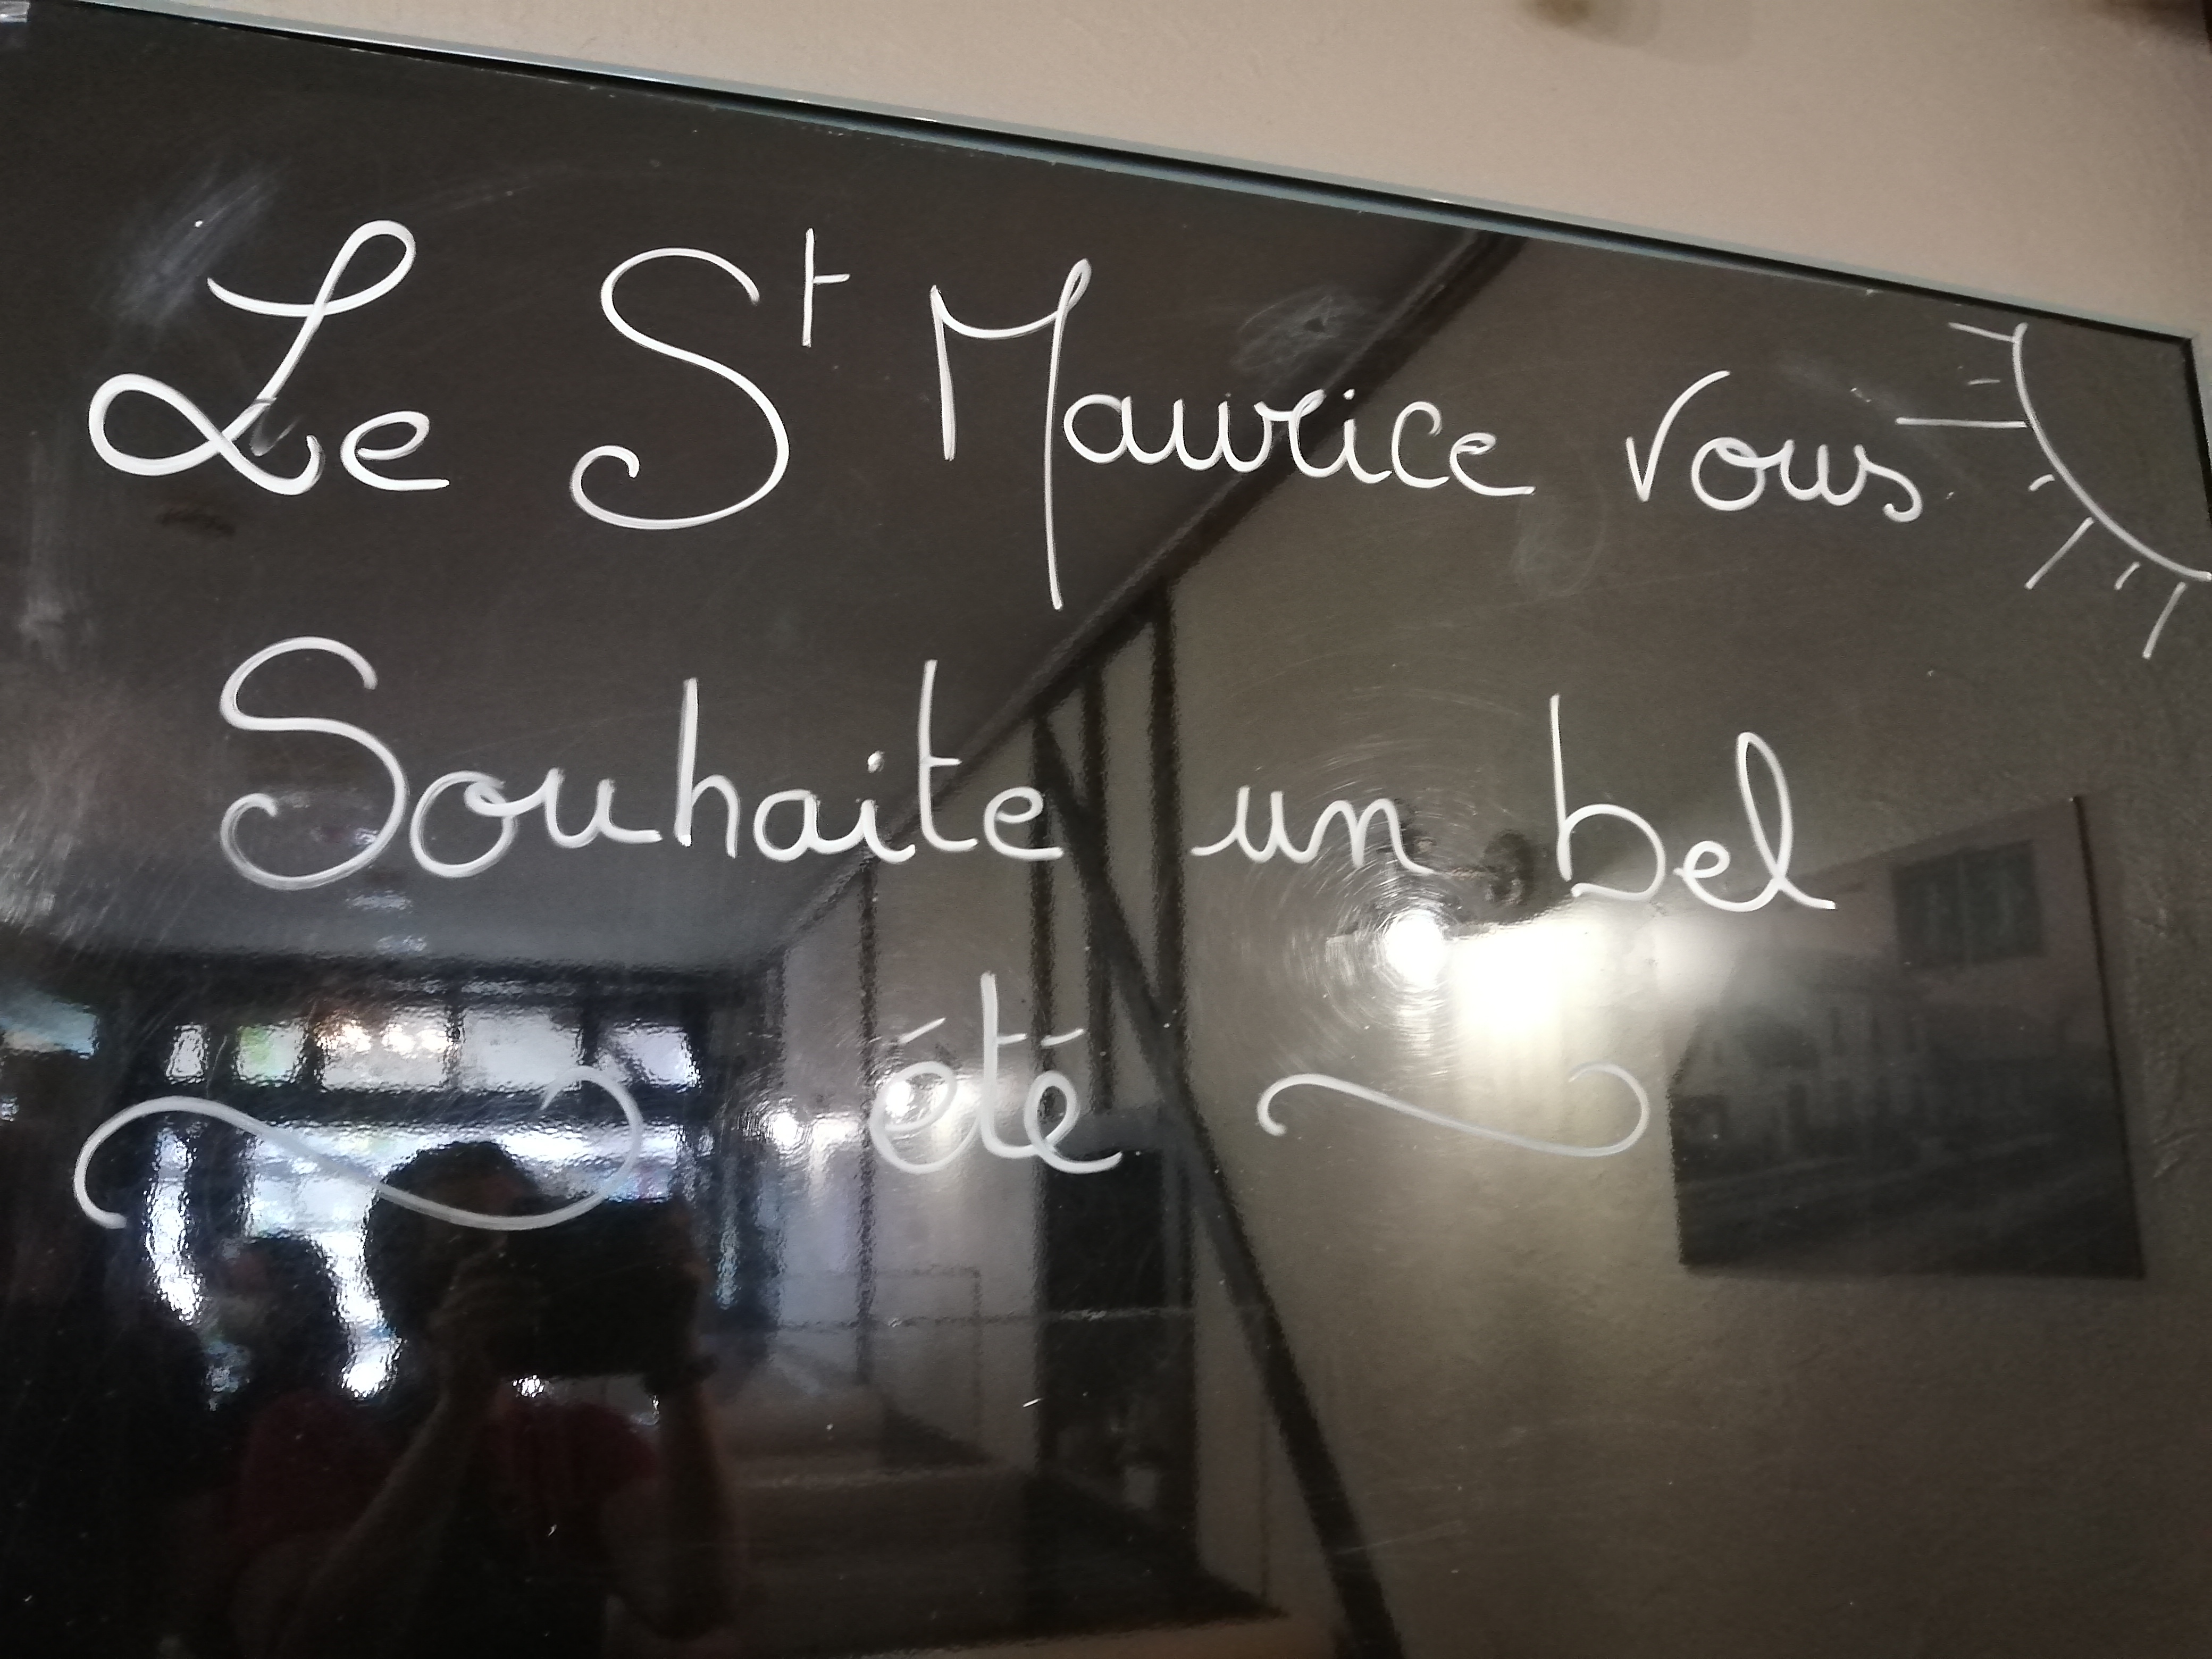 Le St Maurice vous
Souhaite un bel
été